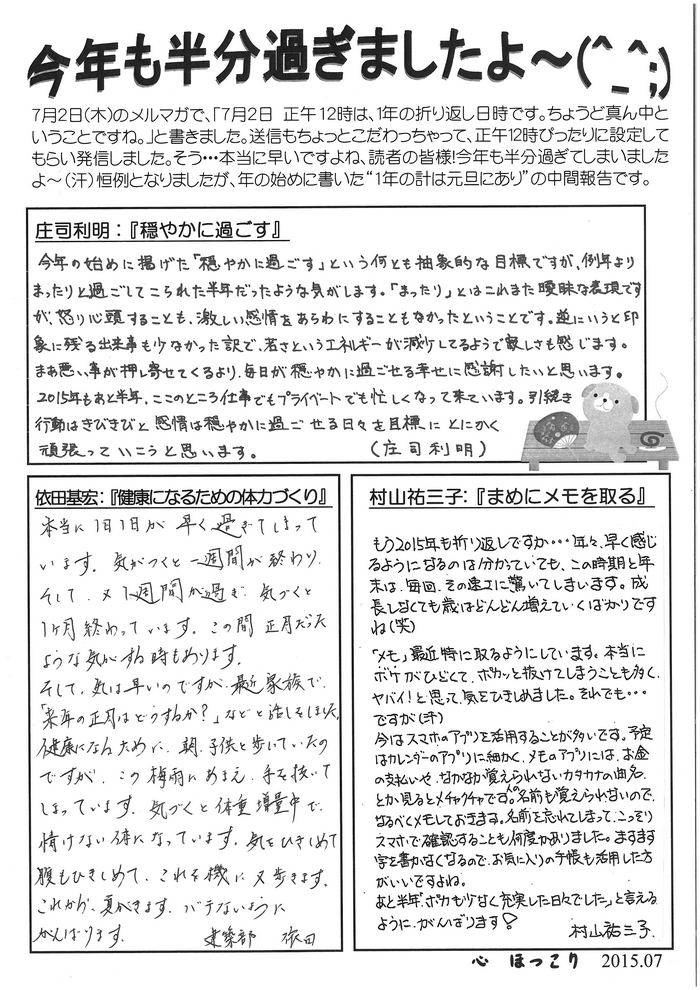 今年も半分過ぎましたよ〜(^_^;)
7月2日(木)のメルマガで、「7月2日 正午12時は、1年の折り返し日時です。ちょうど真ん中と
いうことですね。」と書きました。送信もちょっとこだわっちゃって、正午12時ぴったりに設定して
もらい発信しました。そう…本当に早いですよね、読者の皆様!今年も半分過ぎてしまいました
よ〜(汗)恒例となりましたが、年の始めに書いた“1年の計は元旦にあり”の中間報告です。
庄司利明:『穏やかに過ごす』
今年の始めに掲げた「穏やかに過ごす」という何とも抽象的な目標ですが、例年より
まったりと過ごしてこられた半年だったような気がします。「まったり」とはこれまた曖昧な表現です
が、怒り心頭することも、激しい感情をあらわにすることもなかったということです。逆にいうと印
象に残る出来事も少なかった訳で、若さというエネルギーが減少してるようで寂しさも感じます。
まあ悪い事が押し寄せてくるより、毎日が穏やかに過ごせる幸せに感謝したいと思います。
2015年もあと半年、ここのところ仕事でもプライベートでも忙しくなって来ています。引続き
行動はきびきびと感情は穏やかに過ごせる日々を目標にとにかく
頑張っていこうと思います。 (庄司利明)
依田基宏:『健康になるための体力づくり』
本当に1日1日が早く過ぎてしまって
います。気がつくと一週間が終わり、
そして、又1週間が過ぎ、気づくと
1ヶ月終わっています。この間正月だった
ような気がする時もあります。
そして、気は早いのですが、最近家族で、
「来年の正月はどうするか?」などと話しをしました。
健康になるために、朝、子供と歩いていたの
ですが、この梅雨にあまえ、手を抜いて
しまっています。気づくと体重増量中で、
情けない体になっています。気をひきしめて
腹もひきしめて、これを機に又歩きます。
これから、夏がきます。バテないように
がんばります。 建築部 依田
村山祐三子:『まめにメモを取る』
もう2015年も折り返しですか・・・年々、早く感じ
るようになるのは分かっていても、この時期と年
末は、毎回、その速さに驚いてしまいます。成
長しなくても歳はどんどん増えていくばかりです
ね(笑)
「メモ」最近特に取るようにしています。本当に
ボケがひどくて、ポカッと抜けてしまうことも多く、
ヤバイ!と思って気をひきしめました。それでも・・・
ですが(汗)
今はスマホのアプリを活用することが多いです。予定
はカレンダーのアプリに細かく、メモのアプリには、お金
の支払いや、なかなか覚えられないカタカナの曲名、
とか見るとメチャクチャです。人の名前も覚えられないので、
なるべくメモしておきます。名前を忘れてしまって、こっそり
スマホで確認することも何度かありました。ますます
字を書かなくなるので、お気に入りの手帳も活用した方
がいいですよね。
あと半年「ポカも少なく充実した日々でした」と言える
ように、がんばります♡
村山祐三子.
心 ほっこり 2015.07